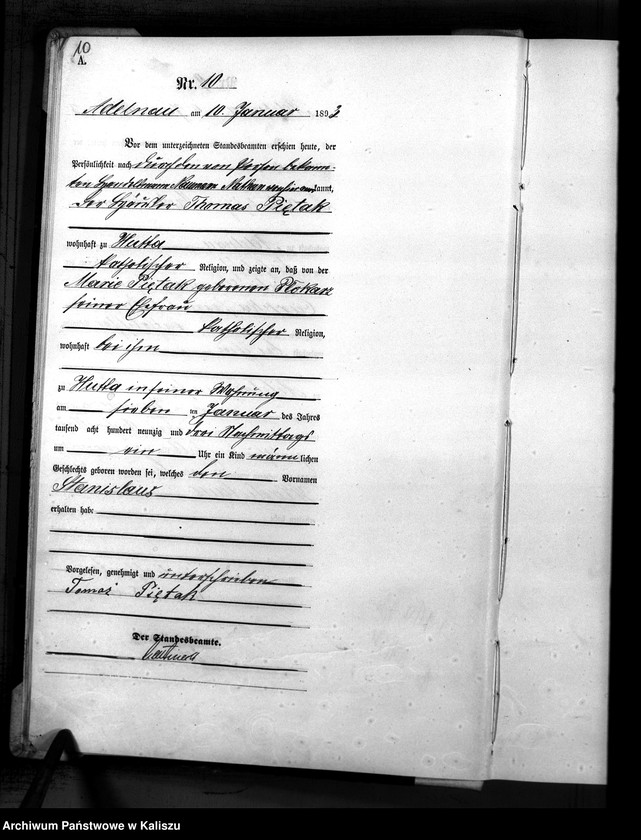 10
A.
Nr. 10
Adelnau am 10. Januar 1893
Vor dem unterzeichneten Standesbeamten erschien heute, der
Persönlichkeit nach durch den von Person bekann-
ten Handelsmann kannt,
der Häusler Thomas Piętak
wohnhaft zu Hutta
katholischer Religion, und zeigte an, daß von der
Marie Piętak geborenen
seiner Ehefrau
katholischer Religion,
wohnhaft bei ihm
zu Hutta in seiner Wohnung
am sieben ten Januar des Jahres
tausend acht hundert neunzig und drei Nachmittags
um ein Uhr ein Kind männlichen
Geschlechts geboren worden sei, welches den Vornamen
Stanislaus
erhalten habe
Vorgelesen, genehmigt und unterschrieben
Tomaż Piętak
Der Standesbeamte.
Archiwum Państwowe w Kaliszu